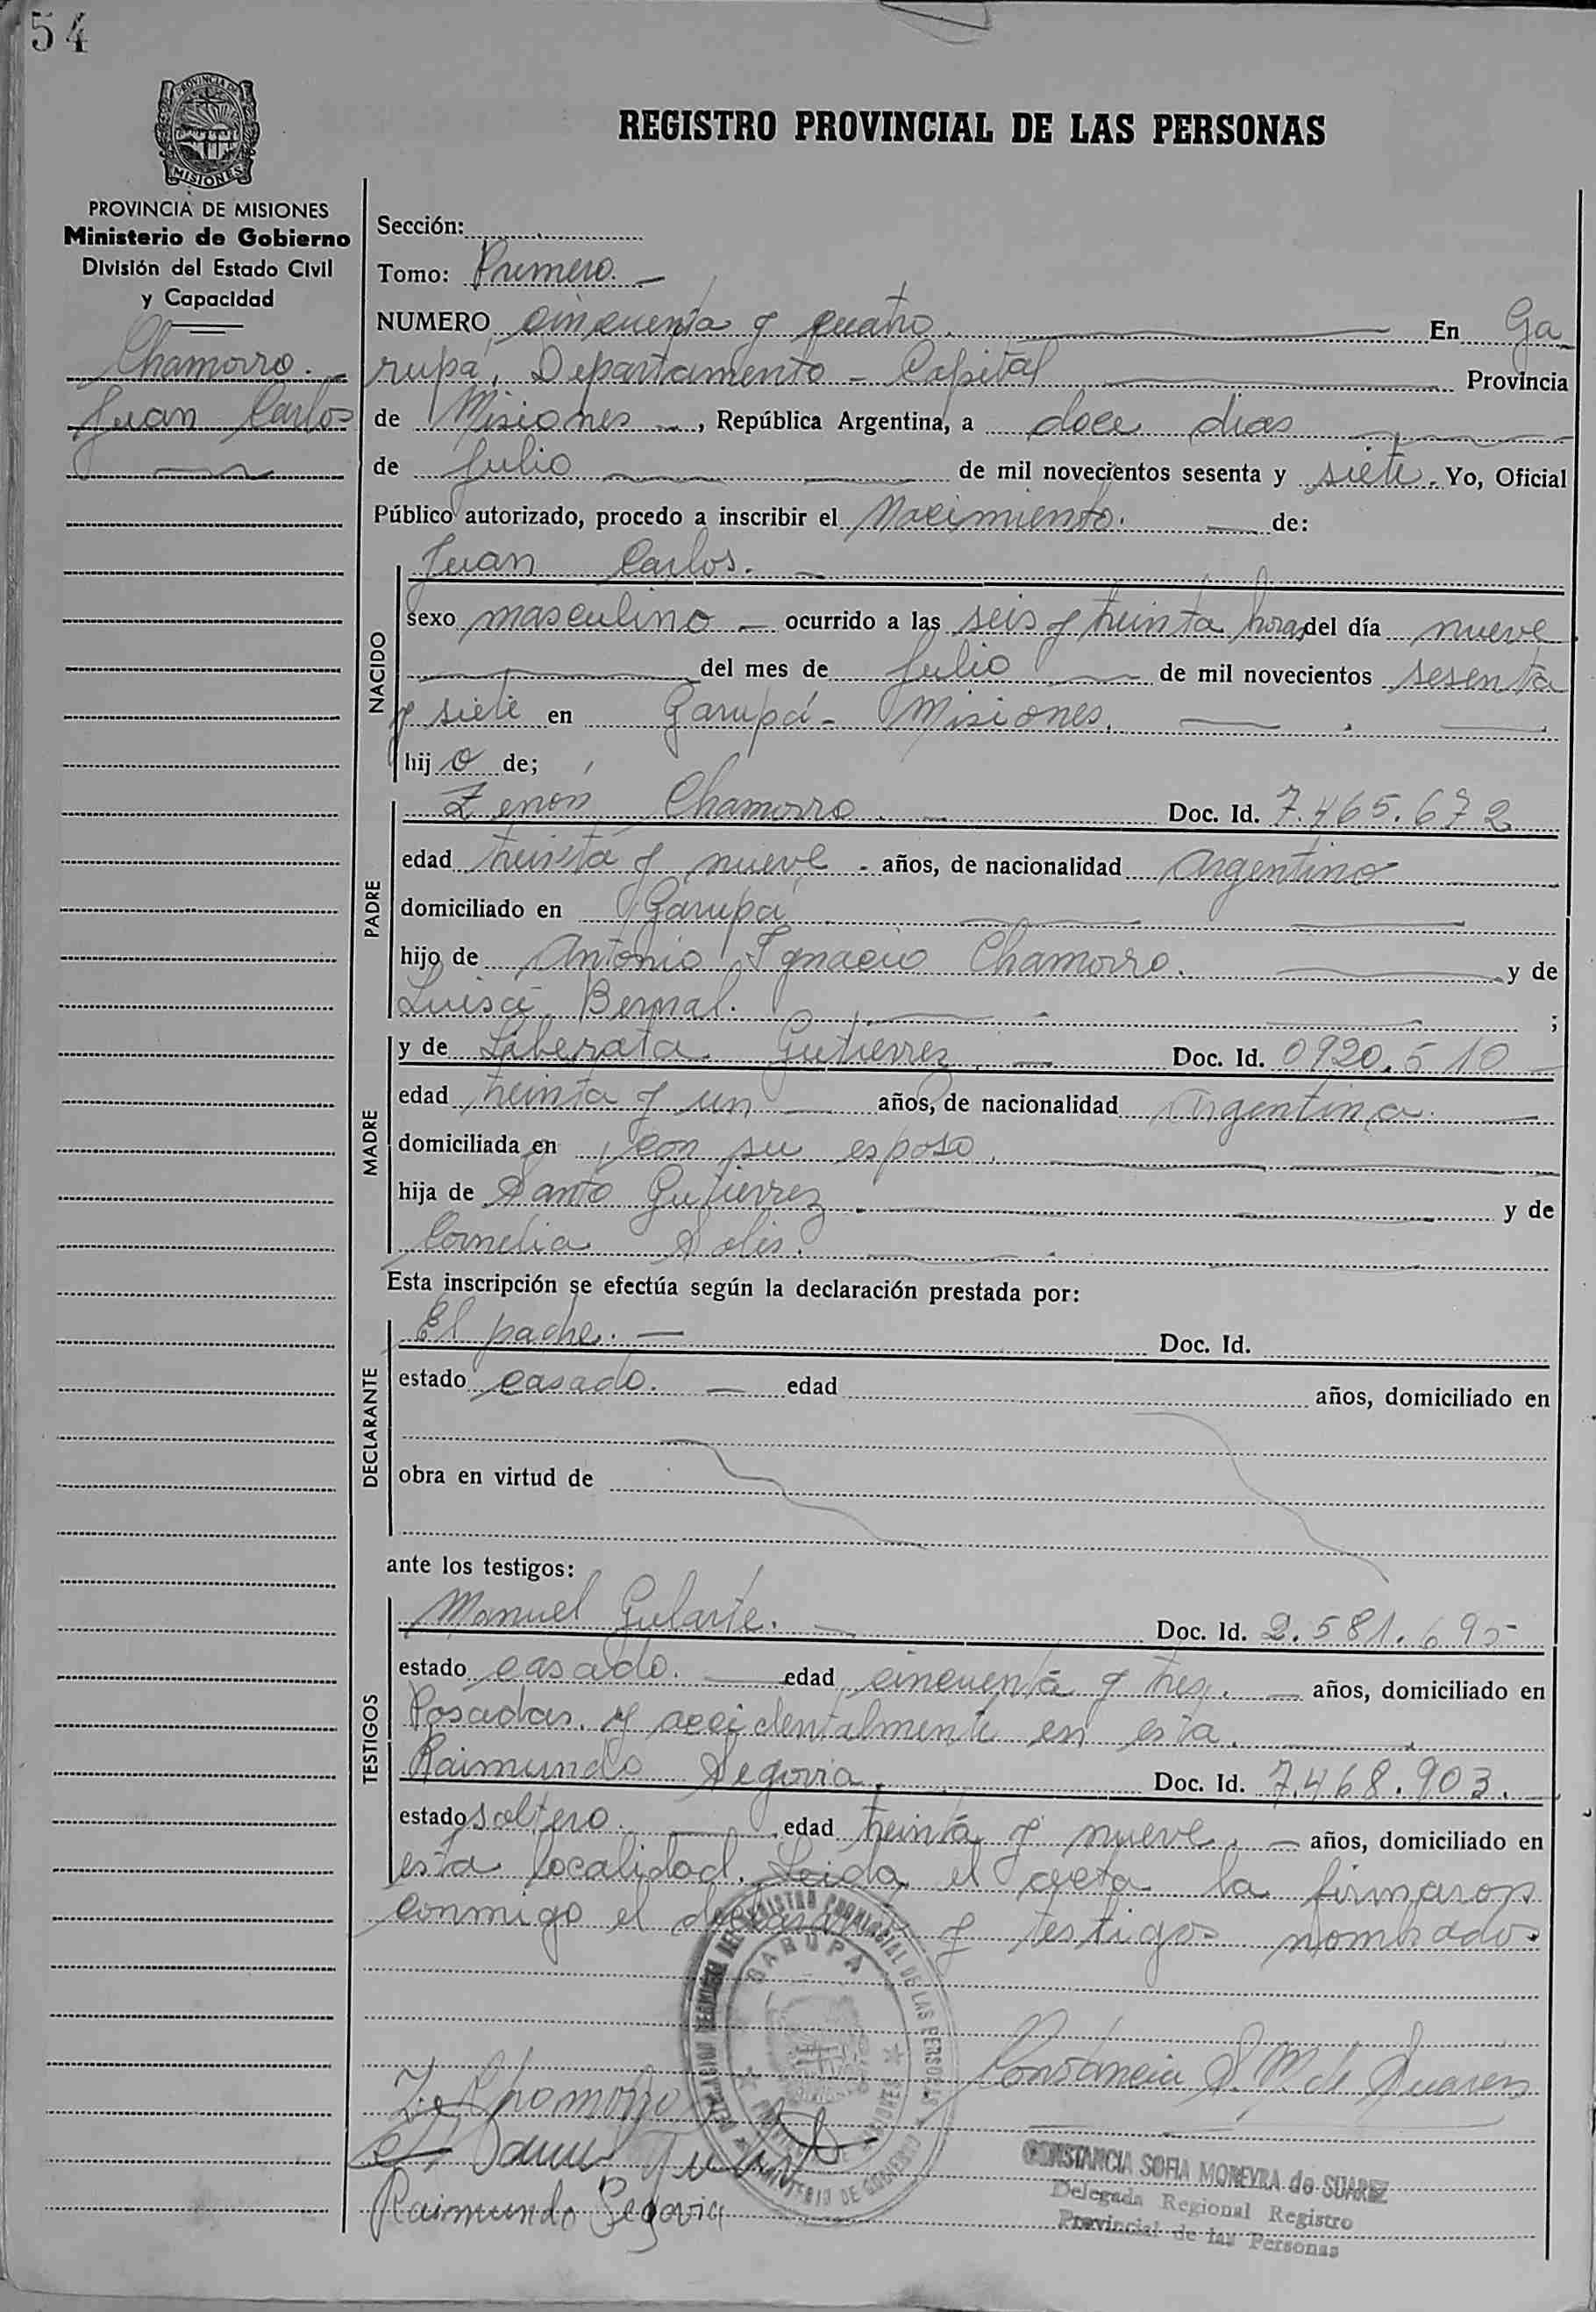 54
PROVINCIA DE
MISIONES
REGISTRO PROVINCIAL DE LAS PERSONAS
PROVINCIA DE MISIONES
Ministerio de Gobierno
División del Estado Civil
y Capacidad
Chamorro.
Juan Carlos
Sección:
Tomo: Primero.
NUMERO cincuenta y cuatro. En Ga
rupá, Departamento - Capital Provincia
de Misiones, República Argentina, a doce dias
de Julio de mil novecientos sesenta y siete. Yo, Oficial
Público autorizado, procedo a inscribir el Nacimiento. de:
NACIDO
Juan Carlos.
sexo masculino ocurrido a las seis y treinta horas del día nueve
del mes de Julio de mil novecientos sesenta
y siete en Garupá - Misiones.
hijo de;
PADRE
Zenón Chamorro. Doc. Id. 7.465.672
edad treinta y nueve - años, de nacionalidad Argentino
domiciliado en Garupá
hijo de Antonio Ignacio Chamorro. y de
Luisa Bernal. ;
MADRE
y de Liberata Gutierrez Doc. Id. 0920.510
edad treinta y un años, de nacionalidad Argentina.
domiciliada en con su esposo.
hija de Santo Gutierrez y de
Cornelia Solis.
Esta inscripción se efectúa según la declaración prestada por:
DECLARANTE
El padre. Doc. Id.
estado casado. edad años, domiciliado en
obra en virtud de
ante los testigos:
TESTIGOS
Manuel Gularte. Doc. Id. 2.581.695
estado casado. edad cincuenta y tres. años, domiciliado en
Posadas. y accidentalmente en esta.
Raimundo Segovia. Doc. Id. 7.468.903.
estado soltero. edad treinta y nueve. años, domiciliado en
esta localidad. Leida el acta la firmaron
conmigo el declarante y testigos nombrados
GARUPA
Constancia S. M. de Suarez
Z. Chamorro
Raimundo Segovia
CONSTANCIA SOFIA MOREYRA de SUAREZ
Delegada Regional Registro
Provincial de las Personas